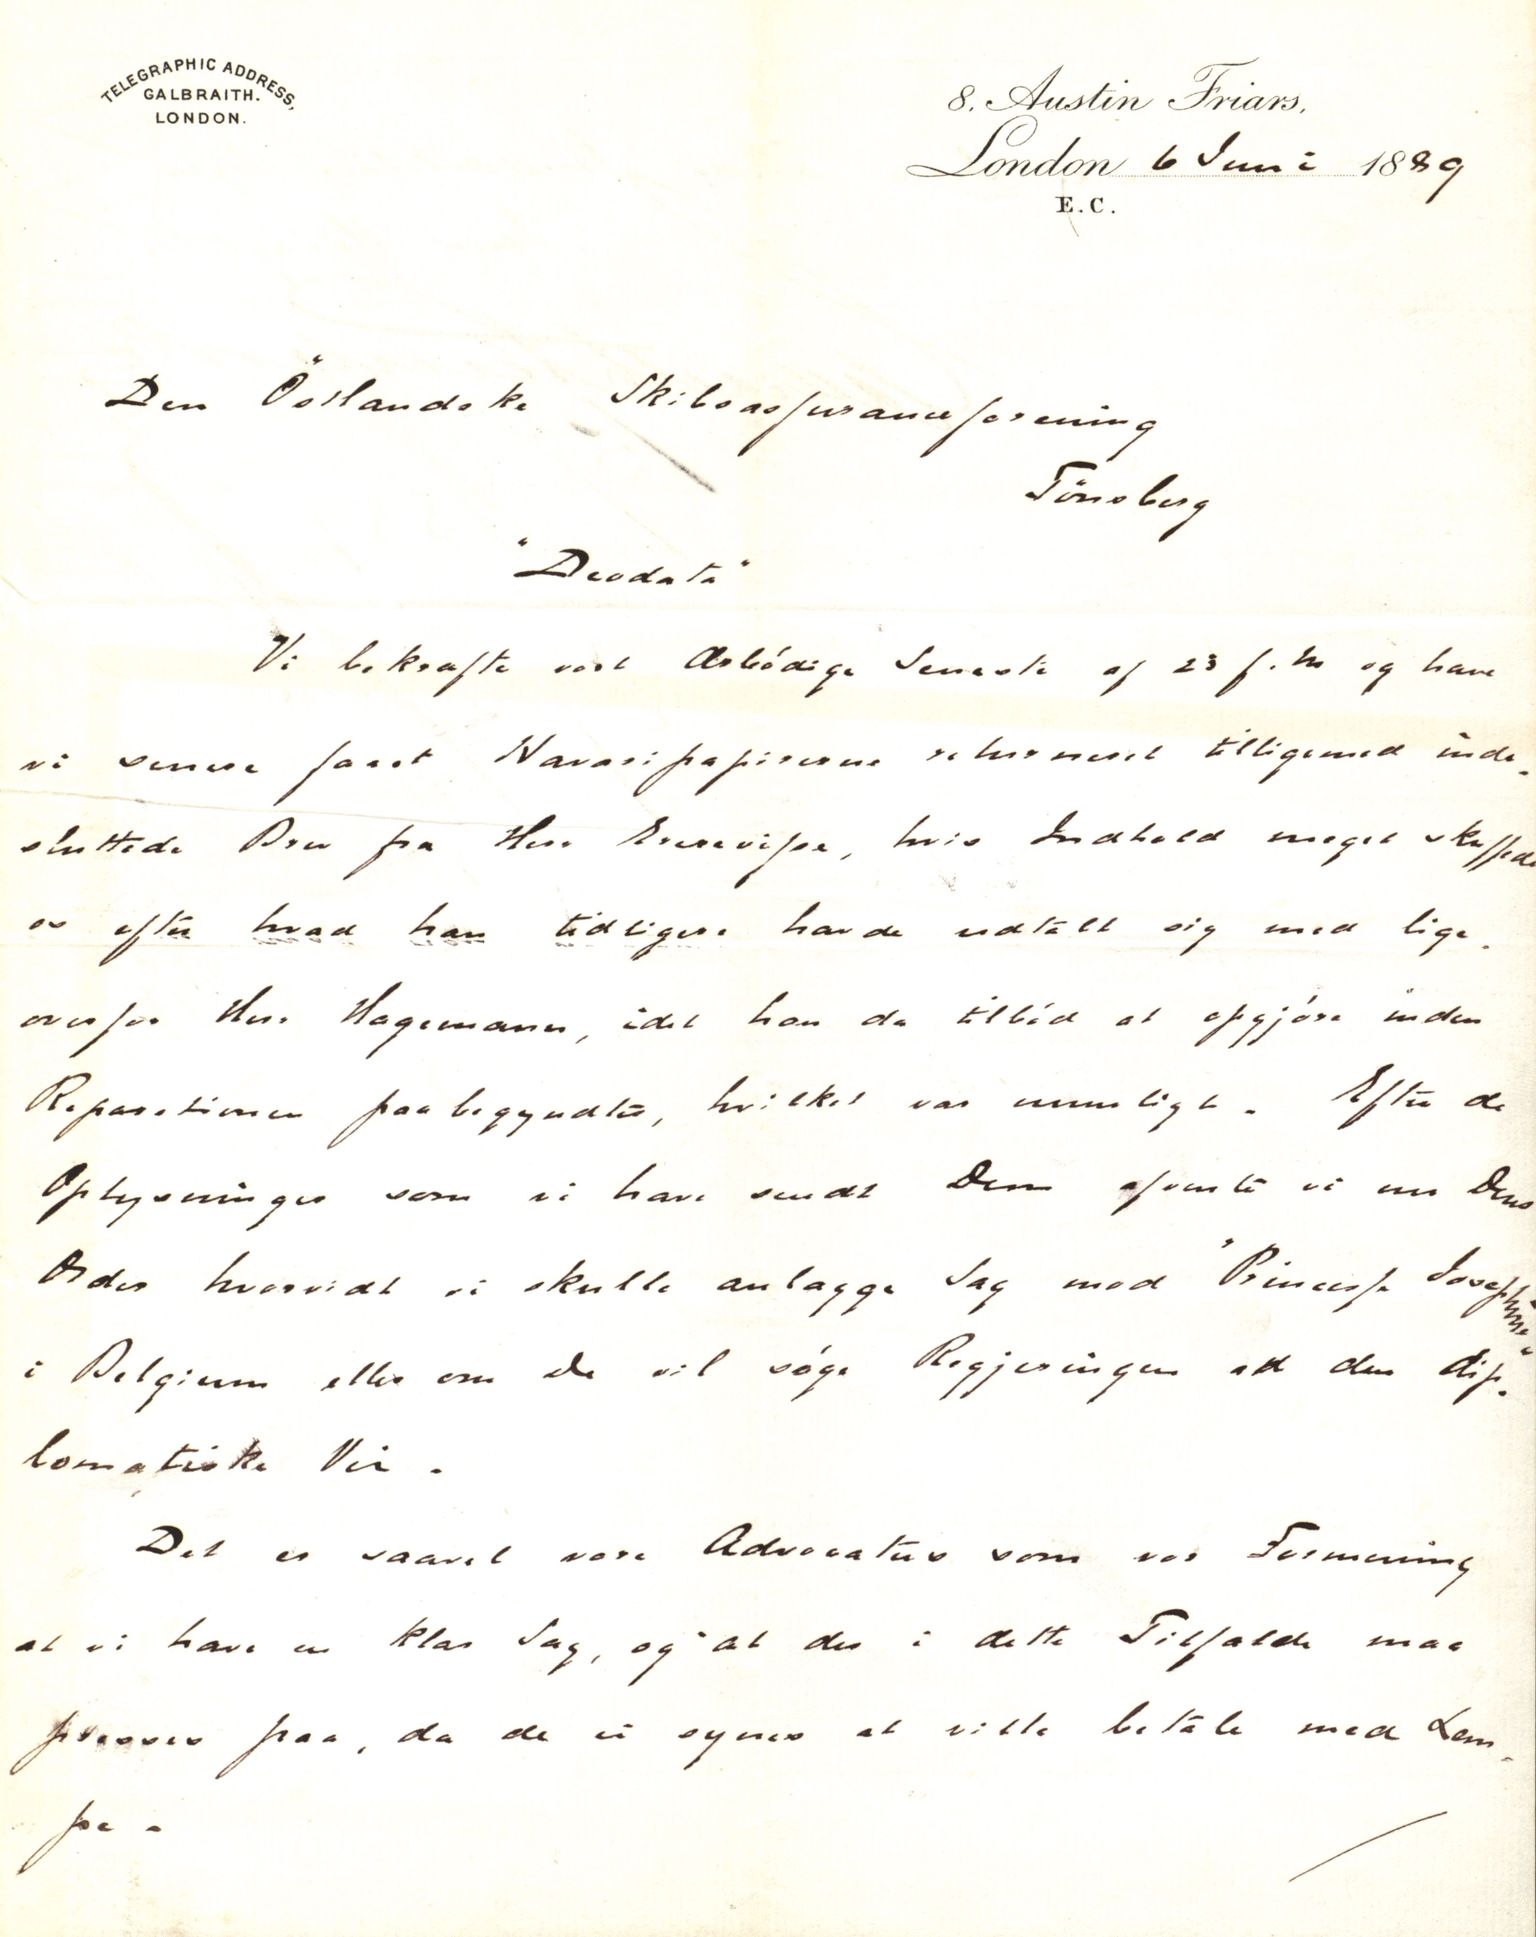 TELEGRAPHIC ADDRESS,
GALBRAITH.
LONDON.
8. Austin Friars,
London 6 Juni 1889
E.C.
Den Östlandske Skibsassuranceforening
Tönsberg
"Deodata"
Vi bekræfte vort Ærbödige Seneste af 23 f. M og have
vi senere faaet Havaripapirerne returneret tilligemed inde-
sluttede Brev fra Herr , hvis Indhold meget skuffede
os efter hvad han tidligere havde udtalt sig med lige-
overfor Herr Hagemann, idet han da tilböd at opgjöre inden
Reparationen paabegyndtes, hvilket var umuligt. Efter de
Oplysninger som vi have sendt Dem afvente vi nu Deres
Order hvorvidt vi skulle anlægge Sag mod "Princesse Josephine"
i Belgium eller om De vil söge Regjeringen ad den dip-
lomatiske Vei.
Det er saavel vore Advocaters som vor Formening
at vi have en klar Sag, og at der i dette Tilfælde maa
presses paa, da de ei synes at ville betale med Lem-
pe.